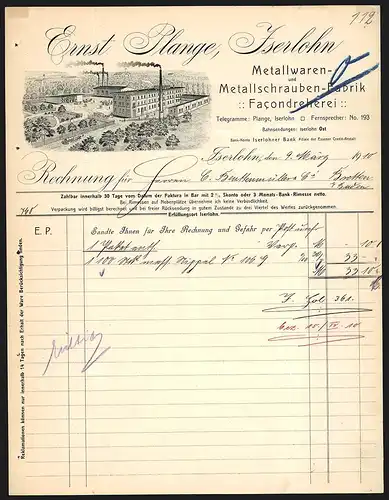 112
Ernst Plange, Iserlohn
Metallwaren-
und
Metallschrauben-Fabrik
:: Façondreherei ::
Telegramme: Plange, Iserlohn □ Fernsprecher: No. 193
Bahnsendungen: Iserlohn Ost
Bank-Konto: Iserlohner Bank Filiale der Essener Credit-Anstalt
Iserlohn, den 9. März 1910
Rechnung für Herren C. Beuttenmüller & Cie Bretten
i/Baden
Zahlbar innerhalb 30 Tage vom Datum der Faktura in Bar mit 2% Skonto oder 3 Monats-Bank-Rimesse netto.
Bei Rimessen auf Nebenplätze übernehme ich keine Verbindlichkeit.
Verpackung wird billigst berechnet und bei freier Rücksendung in gutem Zustande zu drei Viertel des Wertes zurückgenommen.
Erfüllungsort Iserlohn.
E. P.
Sandte Ihnen für Ihre Rechnung und Gefahr per Post
1 Paket enth.
1 100 Stck Nippel No 106 9
F. Fol 361.
Reklamationen können nur innerhalb 14 Tagen nach Erhalt der Ware Berücksichtigung finden.